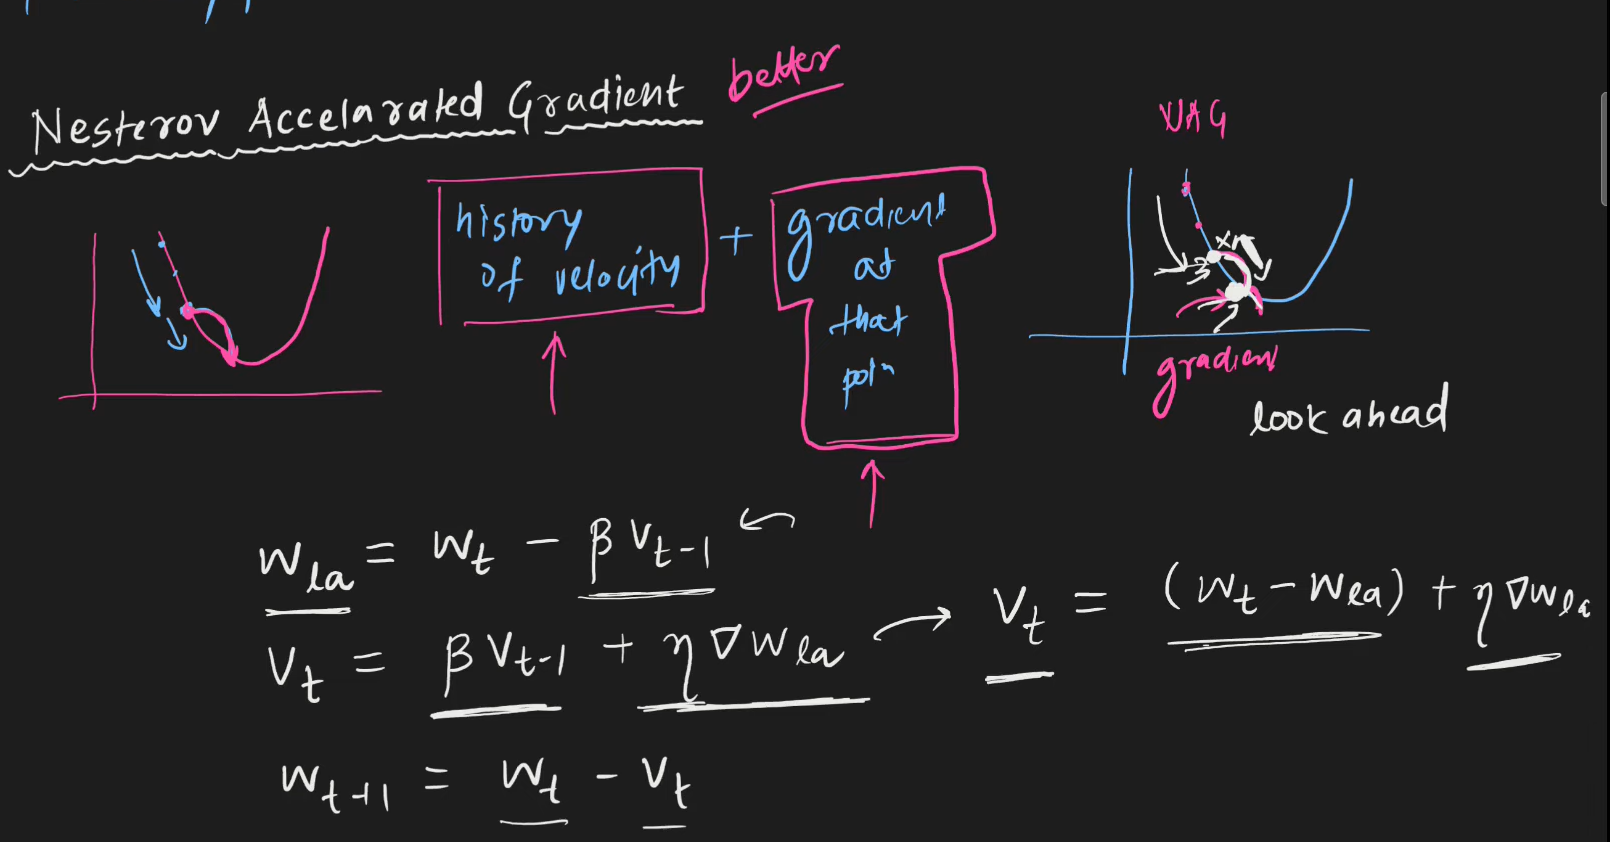 Nesterov Accelarated Gradient better
history
of velocity
+
gradient
at
that
poin
NAG
gradien
look ahead
w_la = w_t - β v_t-1
v_t = β v_t-1 + η ∇w_la
v_t = (w_t - w_la) + η ∇w_la
w_t+1 = w_t - v_t